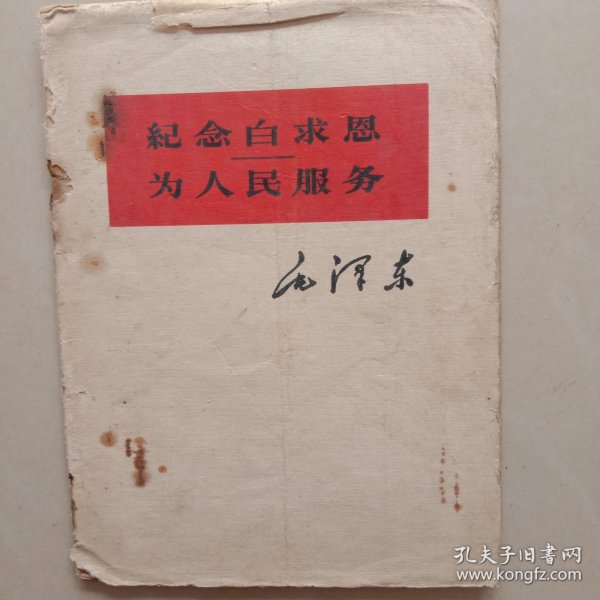 紀念白求恩
为人民服务
毛泽东
孔夫子旧书网
www.kongfz.com